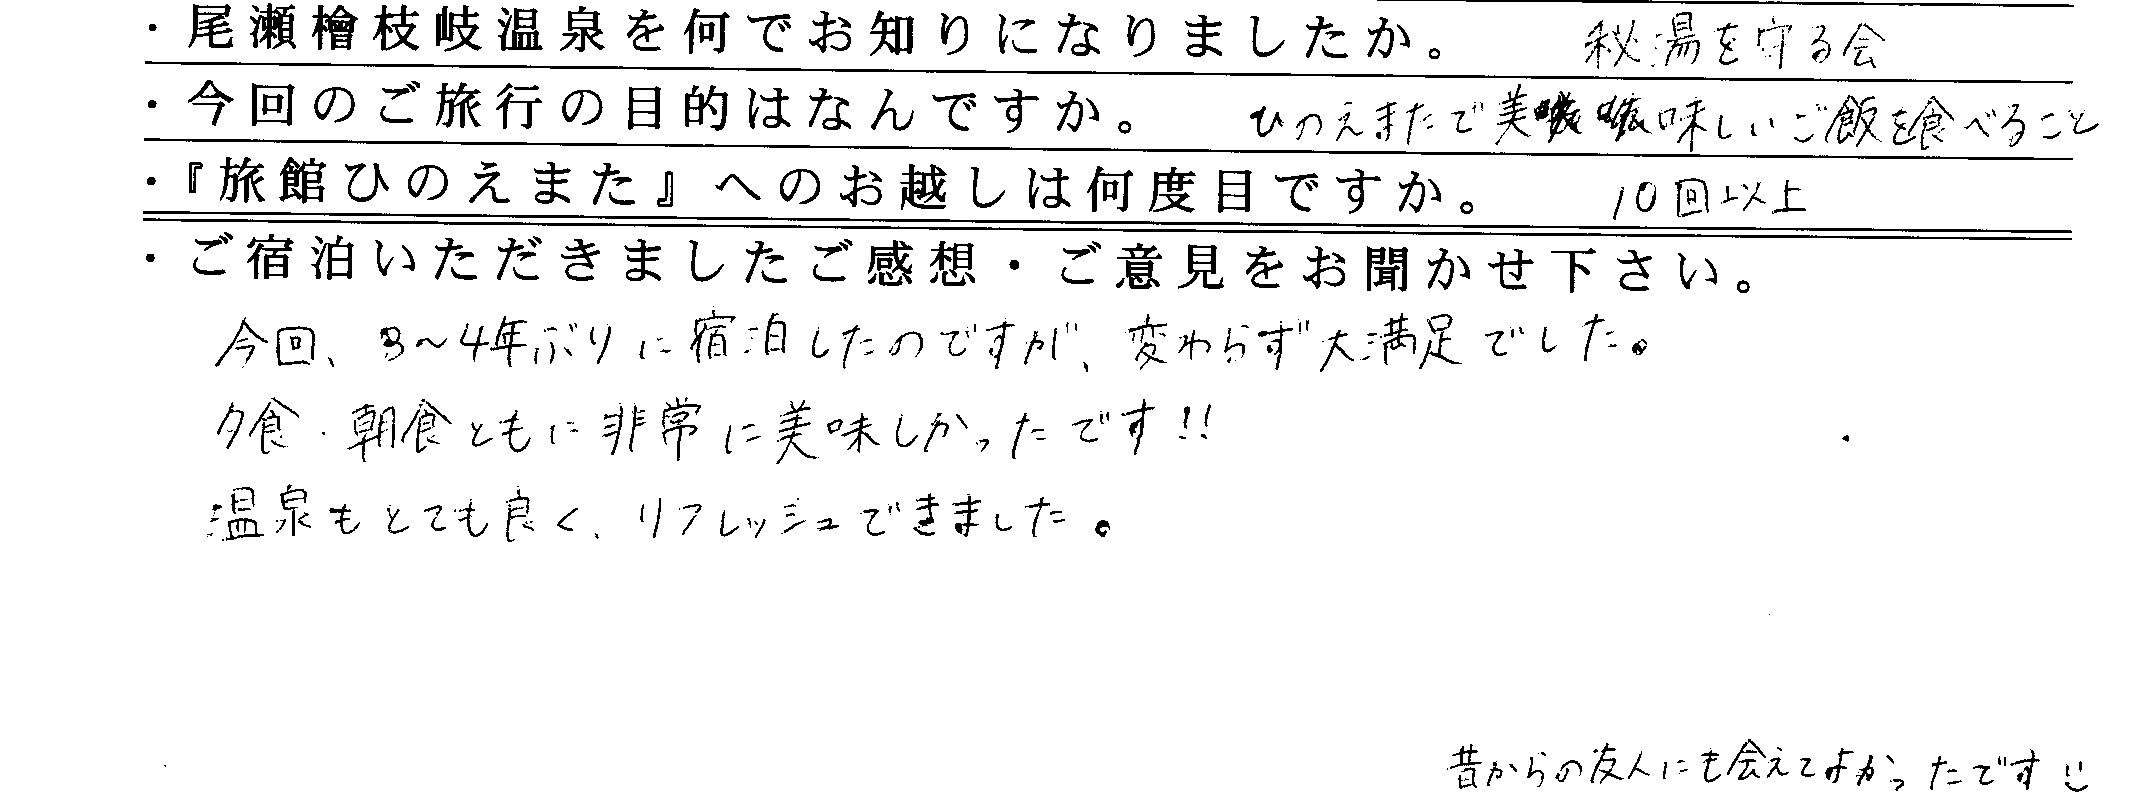 ・尾瀬檜枝岐温泉を何でお知りになりましたか。 秘湯を守る会
・今回のご旅行の目的はなんですか。 ひのえまたで美味しいご飯を食べること
・『旅館ひのえまた』へのお越しは何度目ですか。 10回以上
・ご宿泊いただきましたご感想・ご意見をお聞かせ下さい。
今回、3〜4年ぶりに宿泊したのですが、変わらず大満足でした。
夕食・朝食ともに非常に美味しかったです!!
温泉もとても良く、リフレッシュできました。
昔からの友人にも会えてよかったです